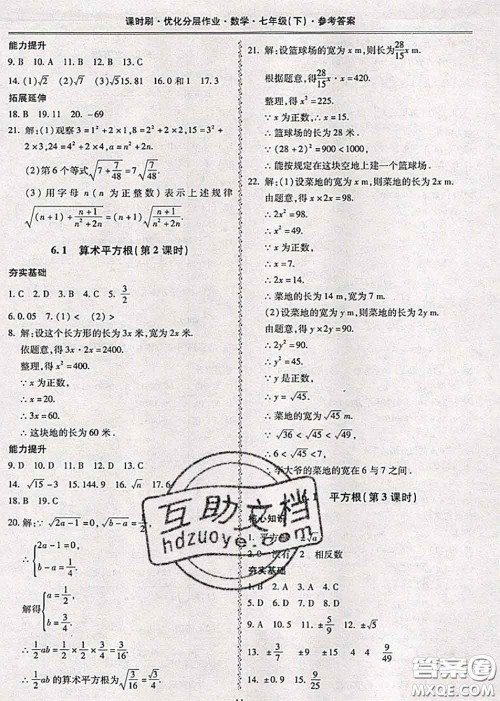 课时刷·优化分层作业·数学·七年级(下)·参考答案
能力提升
9. B 10. A 11. B 12. C 13. C
14. (1)√2 (2)√5 15. 3 16. 0 和 1 17. 3
拓展延伸
18. B 19. 11 20. -69
21. 解:(1)观察 3=1²+2×1,8=2²+2×2,15=3²+
2×3,24=4²+2×4,aₙ=n²+2n.
(2)第 6 个等式√(7+7/48)=7√(7/48).
(3)用字母 n(n 为正整数)表示上述规律
6.1 算术平方根(第 2 课时)
夯实基础
1. C 2. D 3. C 4. B 5. 3/2
6. 0.05 7. (1)< (2)>
8. 解:设这个长方形的长为 3x 米,宽为 2x 米.
依题意,得 3x·2x=2400.
整理,得 x²=400.
∵ x 为正数,
∴ x=20.
∴ 3x=60.
∴ 这块地的长为 60 米.
能力提升
9. D 10. A 11. B 12. B 13. D
14. √15-3 15. 4 16. 4 17.
18. B 19. C
20. 解:∵ √(2a-1)=0,√(b-a)=1/2,
∴ {2a-1=0,
b-a=1/4.
解得{a=1/2,
b=3/4.
∴ 1/2ab=1/2×1/2×3/4=3/16.
∴ 1/2ab 的算术平方根为√(3/16)=√3/4.
21. 解:设篮球场的宽为 x m,则长为28/15x m.
根据题意,得28/15x·x=420.
整理,得 x²=225.
∵ x 为正数,
∴ x=15.
∴ 篮球场的长为 28 米.
∵ (28+2)²=900<1000,
∴ 能按规定在这块空地上建一个篮球场.
22. 解:(1)设菜地的宽为 x m,则长为 2x m.
由题意,得 x×2x=98.
∴ 2x²=98.
∴ x²=49.
∵ x 是正数,
∴ x=7.
∴ 2x=14.
∴ 菜地的长为 14 m,宽为 7 m.
(2)设菜地的宽为 y m,则长为 2y m.
由题意,得 y×2y=90.
∴ 2y²=90.
∴ y²=45.
∵ y 是正数,
∴ y=√45.
∴ 菜地的宽为√45 m.
∵ √36<√45<√49,
∴ 6<√45<7.
∴ 李大爷的菜地的宽在 6 与 7 之间.
6.1 平方根(第 3 课时)
核心知识
1. 平方根 ±√a
2. 0 没有 2 相反数
夯实基础
1. C 2. A 3. A 4. C
5. D 6. D 7. B 8. D
9. A 10. 5 11. ±5 12. ±√5
互助文档
hdzuoye.com
答案圈
MXQE.COM